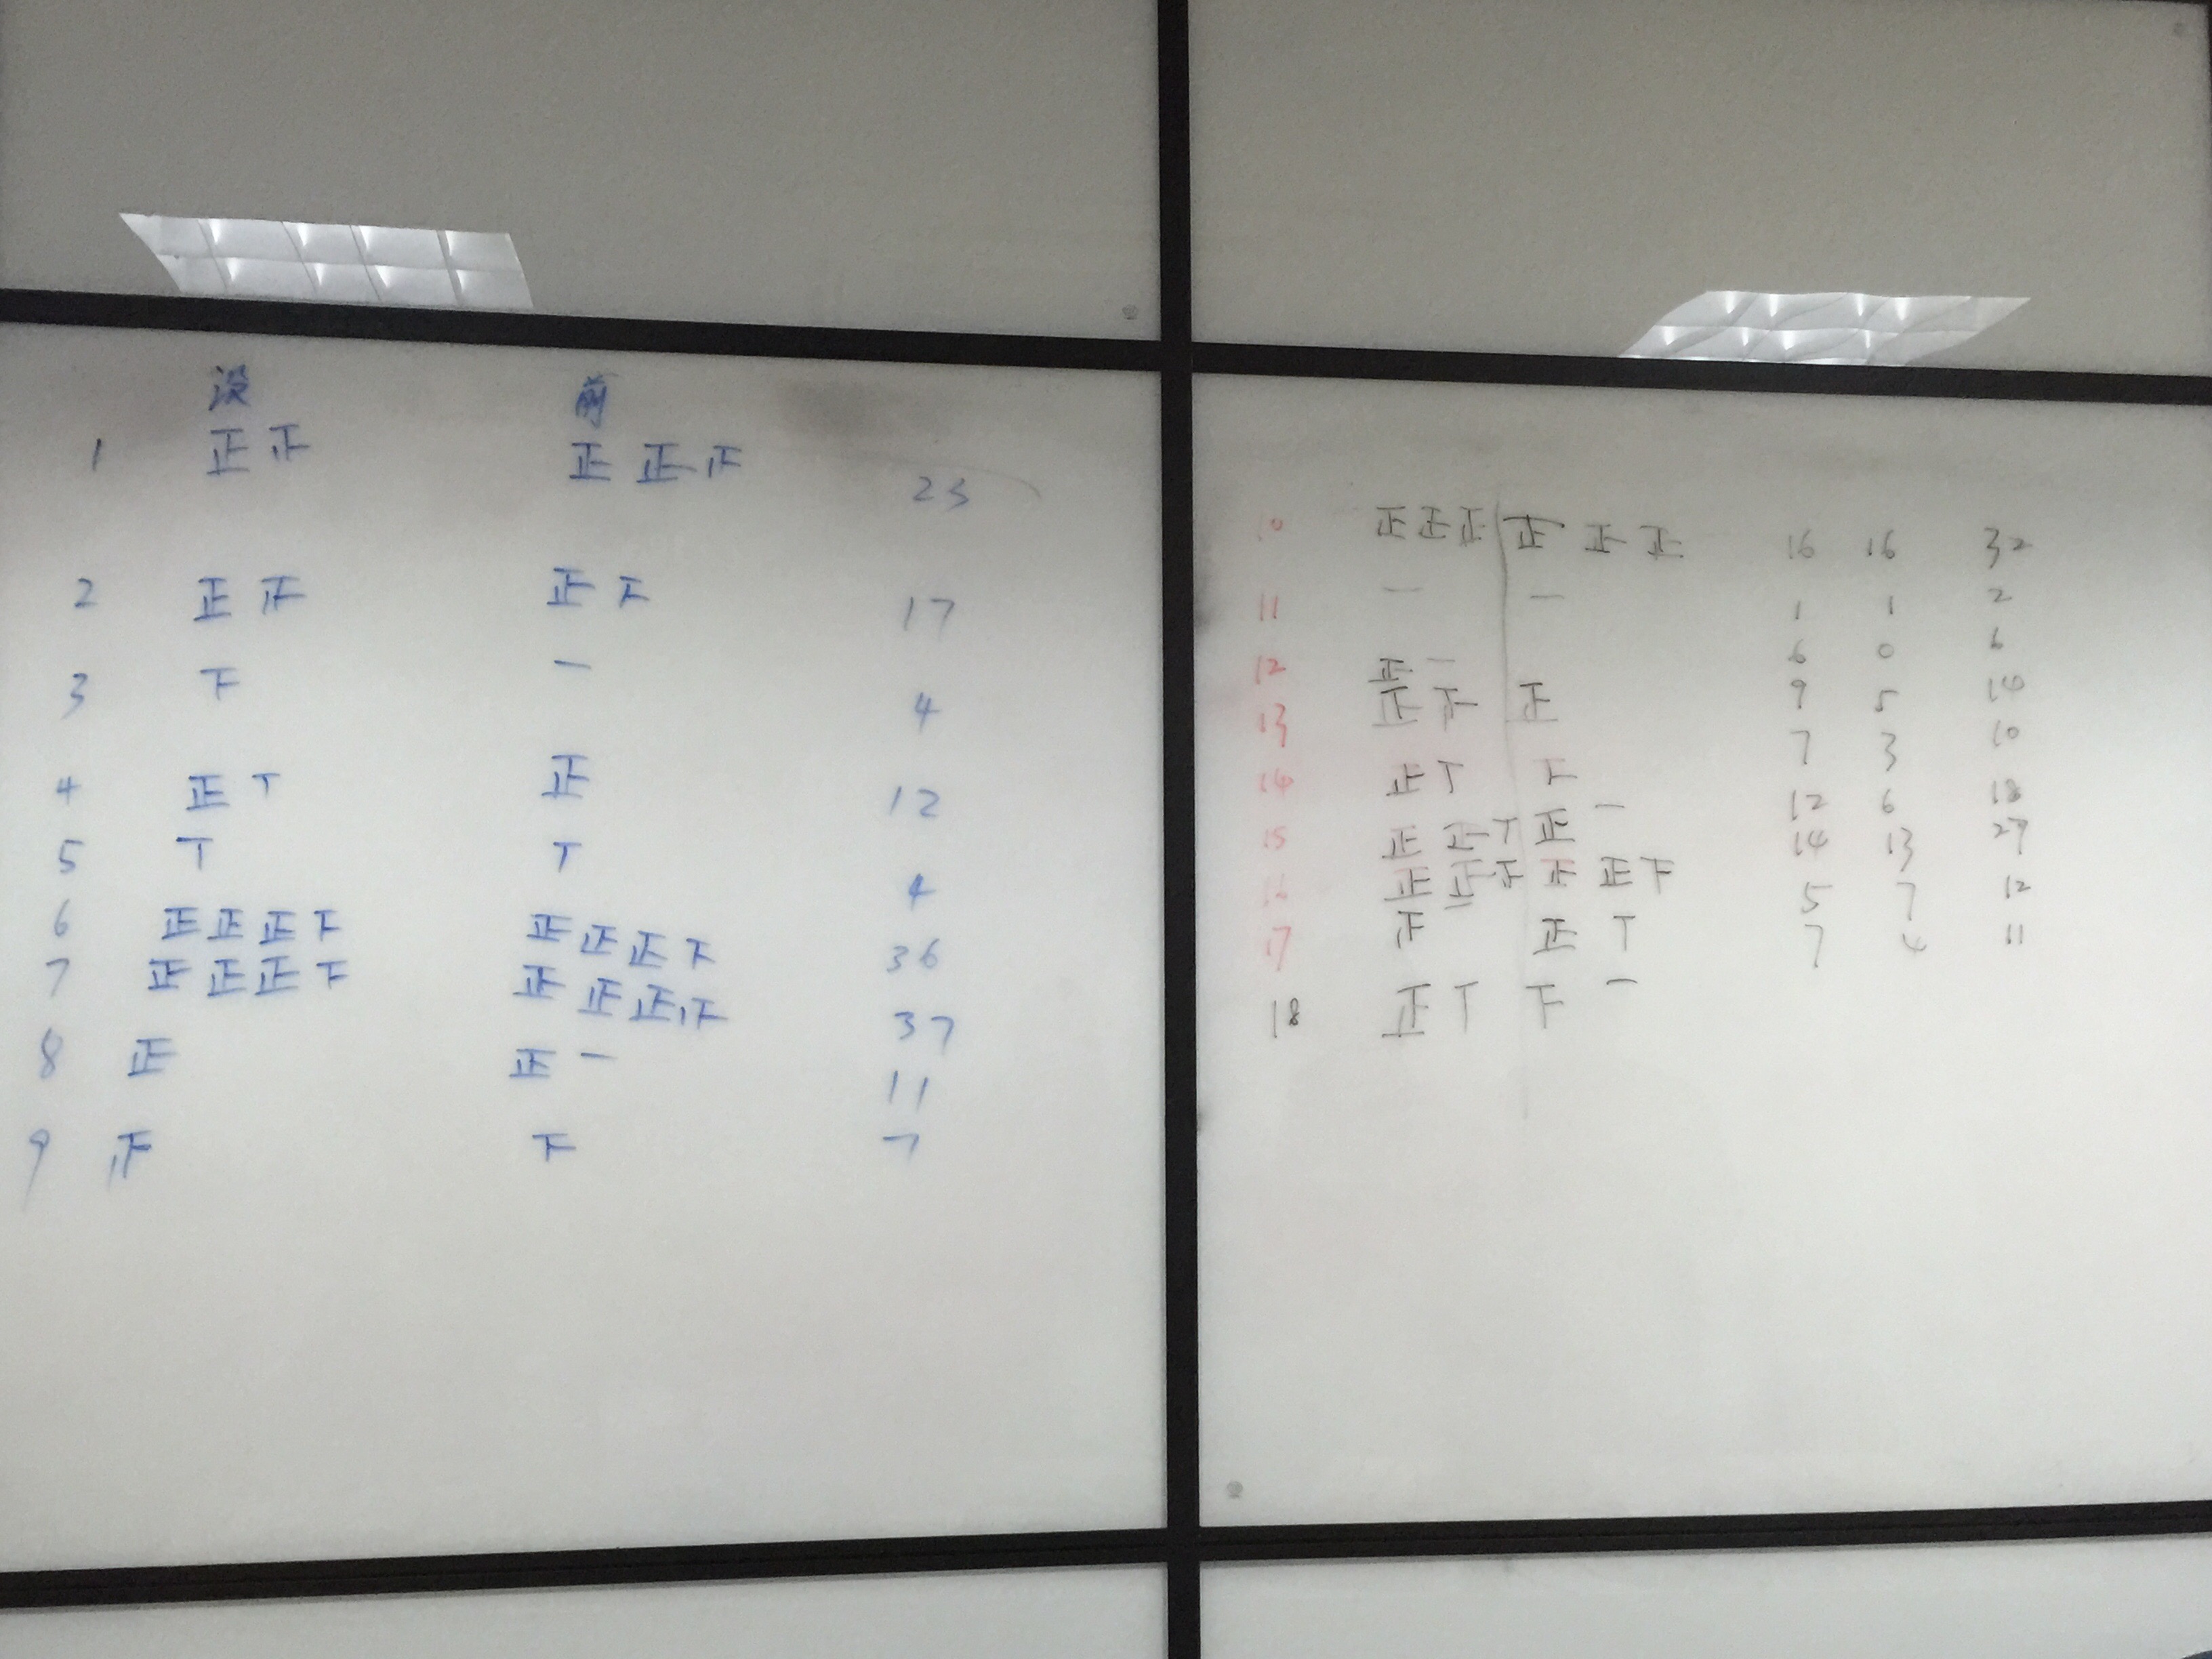 设 前
1 正正 正正正 23
2 正正 正下 17
3 下 一 4
4 正丅 正 12
5 丅 丅 4
6 正正正下 正正正下 36
7 正正正下 正正正正 37
8 正 正一 11
9 正 下 7
10 正正正 正正正 16 16 32
11 一 一 1 1 2
12 正一 6 0 6
13 正正 正 9 5 14
14 正丅 下 7 3 10
15 正正丅 正一 12 6 18
16 正正正 正正下 14 13 27
17 正 正丅 5 7 12
18 正丅 下一 7 4 11